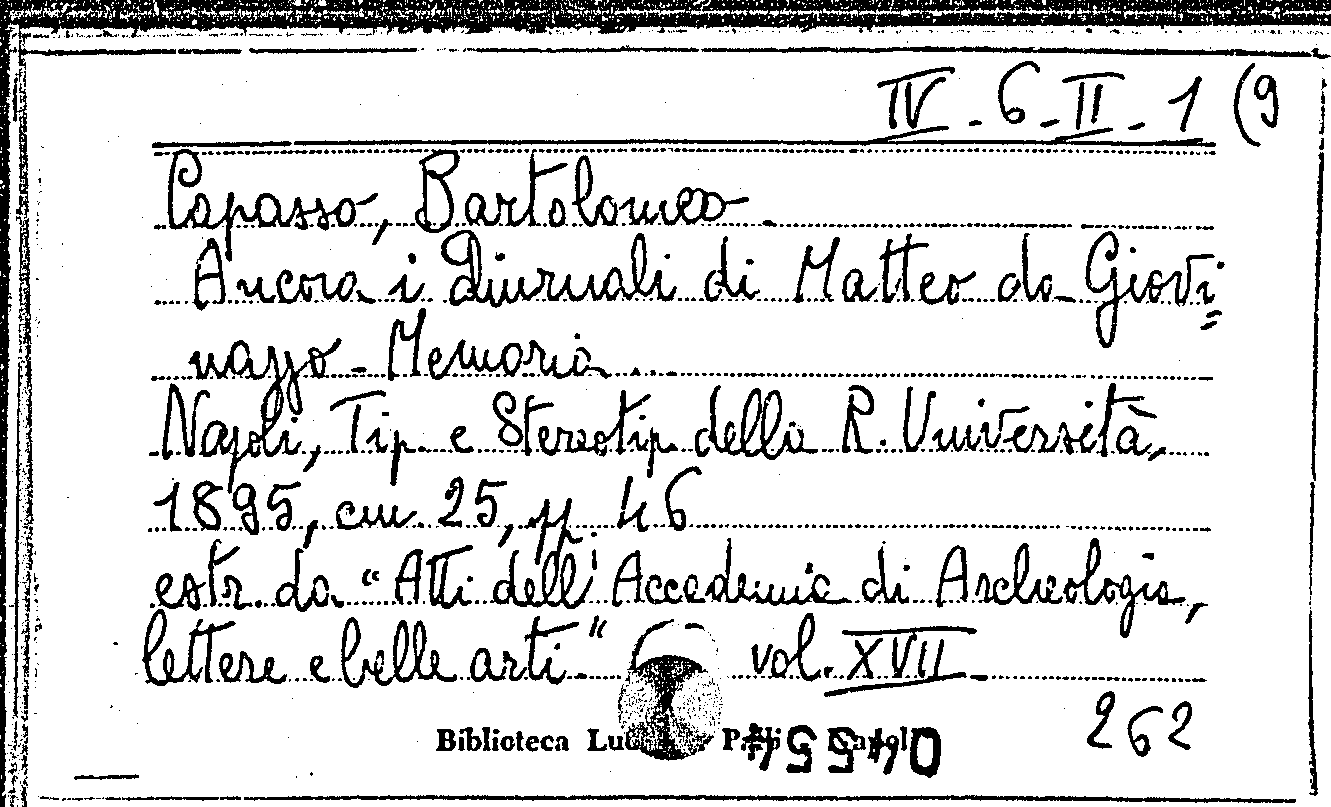 IV - 6 - II - 1 (9
Capasso, Bartolomeo.
Ancora i Diurnali di Matteo da Giovi=
nazzo - Memoria...
Napoli, Tip. e Stereotip. della R. Università,
1895, cm. 25, pp. 46
estr. da "Atti dell'Accademia di Archeologia,
lettere e belle arti" vol. XVII
262
Biblioteca